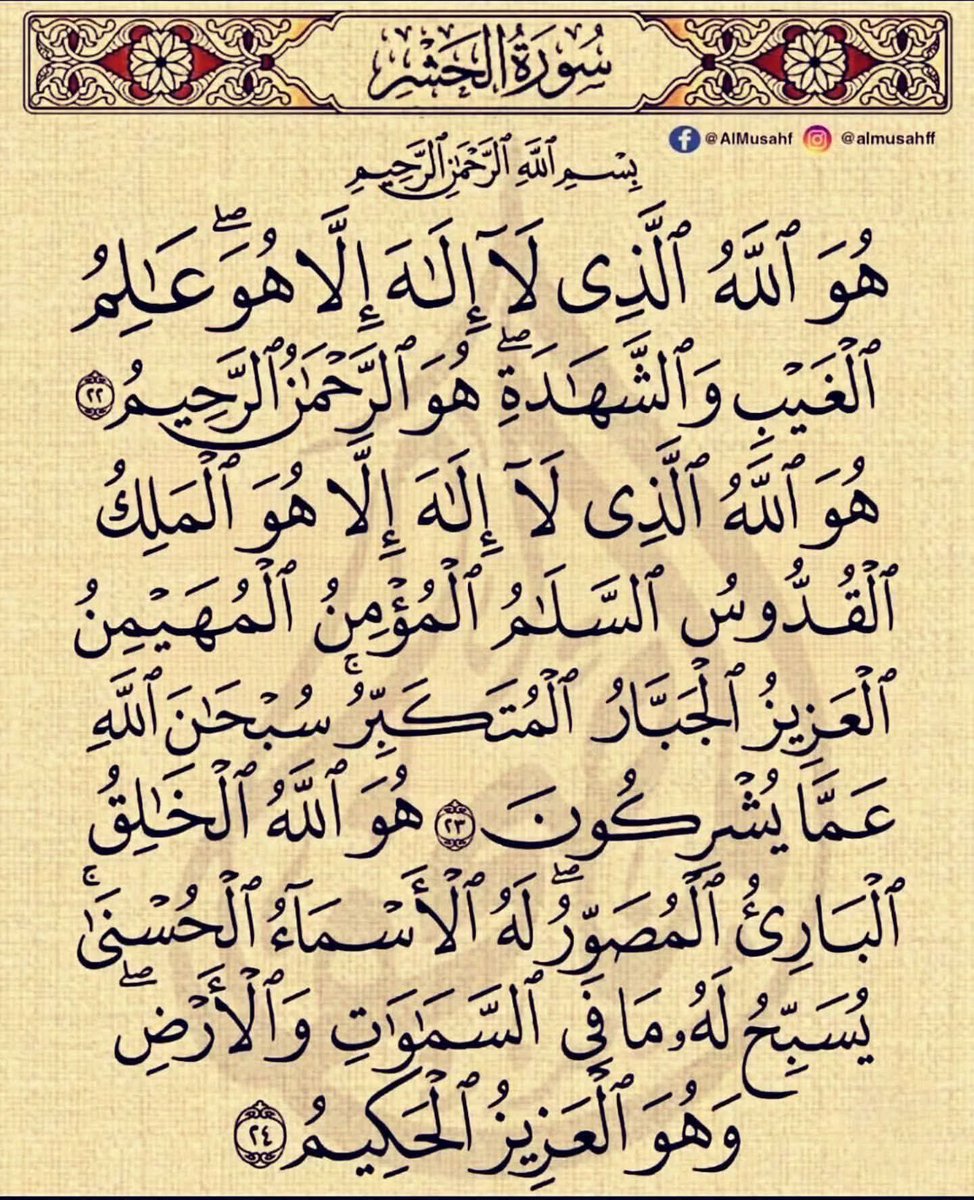 سُورَةُ الحَشْرِ
@AlMusahf @almusahff
بِسْمِ ٱللَّهِ ٱلرَّحْمَٰنِ ٱلرَّحِيمِ
هُوَ ٱللَّهُ ٱلَّذِى لَآ إِلَٰهَ إِلَّا هُوَۖ عَٰلِمُ
ٱلْغَيْبِ وَٱلشَّهَٰدَةِۖ هُوَ ٱلرَّحْمَٰنُ ٱلرَّحِيمُ ٢٢
هُوَ ٱللَّهُ ٱلَّذِى لَآ إِلَٰهَ إِلَّا هُوَ ٱلْمَلِكُ
ٱلْقُدُّوسُ ٱلسَّلَٰمُ ٱلْمُؤْمِنُ ٱلْمُهَيْمِنُ
ٱلْعَزِيزُ ٱلْجَبَّارُ ٱلْمُتَكَبِّرُۚ سُبْحَٰنَ ٱللَّهِ
عَمَّا يُشْرِكُونَ ٢٣ هُوَ ٱللَّهُ ٱلْخَٰلِقُ
ٱلْبَارِئُ ٱلْمُصَوِّرُۖ لَهُ ٱلْأَسْمَآءُ ٱلْحُسْنَىٰۚ
يُسَبِّحُ لَهُۥ مَا فِى ٱلسَّمَٰوَٰتِ وَٱلْأَرْضِۖ
وَهُوَ ٱلْعَزِيزُ ٱلْحَكِيمُ ٢٤